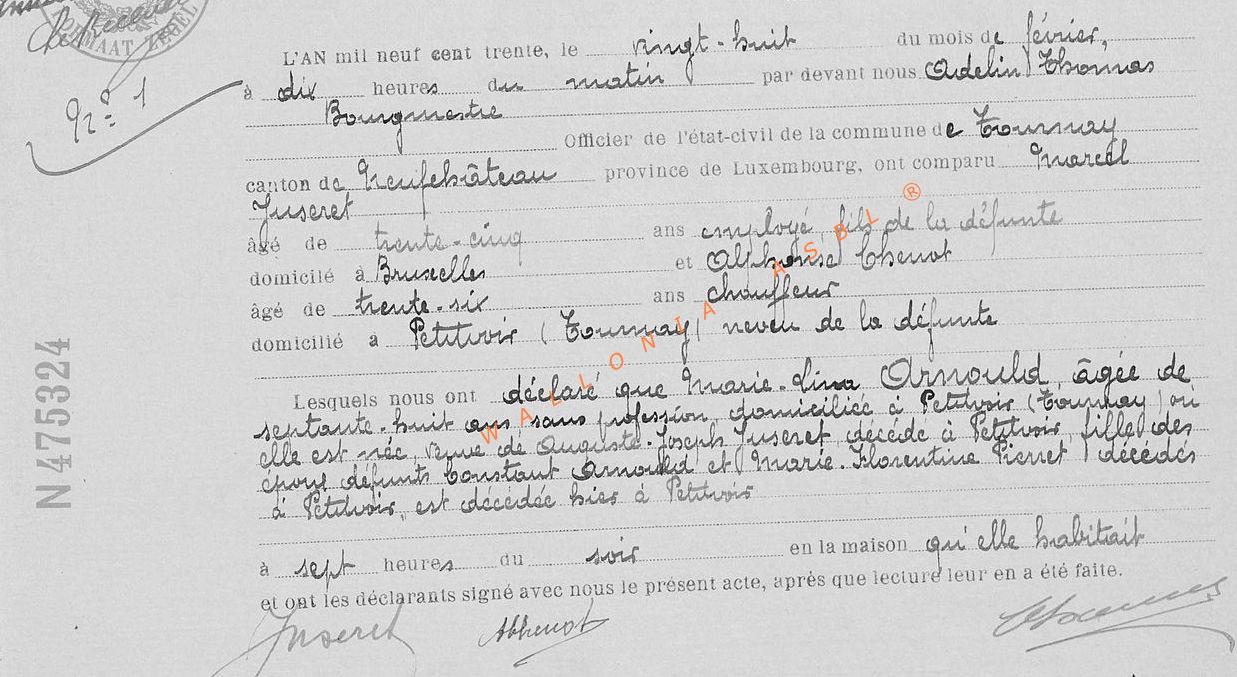 FORMAAT ZEGEL
N° 1
L'AN mil neuf cent trente, le vingt-huit du mois de février,
à dix heures du matin par devant nous Adelin Thomas
Bourgmestre
Officier de l'état-civil de la commune de Tournay
canton de Neufchâteau province de Luxembourg, ont comparu Marcel
Juseret
âgé de trente-cinq ans employé, fils de la défunte
domicilé à Bruxelles et Alphonse Chenot
âgé de trente-six ans chauffeur
domicilié à Petitvoir (Tournay) neveu de la défunte
Lesquels nous ont déclaré que Marie-Lina Arnould, âgée de
septante-huit ans, sans profession, domiciliée à Petitvoir (Tournay) où
elle est née, veuve de Auguste-Joseph Juseret décédé à Petitvoir, fille des
époux défunts Constant Arnould et Marie-Florentine Pierret décédés
à Petitvoir, est décédée hier à Petitvoir
à sept heures du soir en la maison qu'elle habitait
et ont les déclarants signé avec nous le présent acte, après que lecture leur en a été faite.
Juseret AChenot
N 475324
WALLONIA ASBL ®